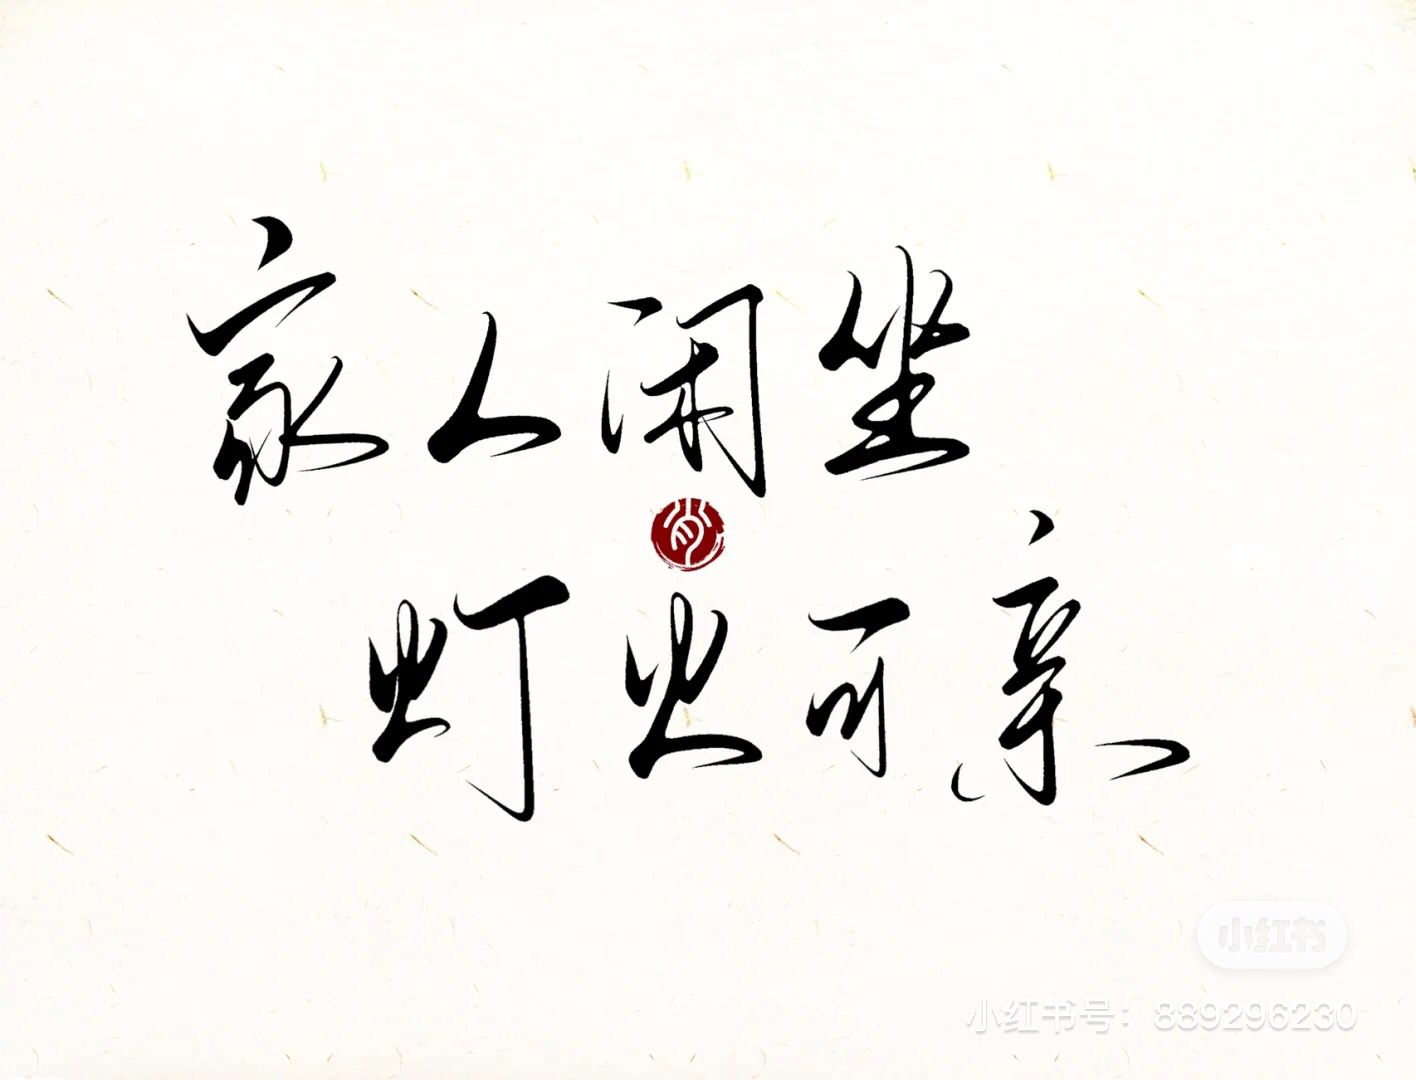 家人闲坐
灯火可亲
小红书
小红书号：889296230